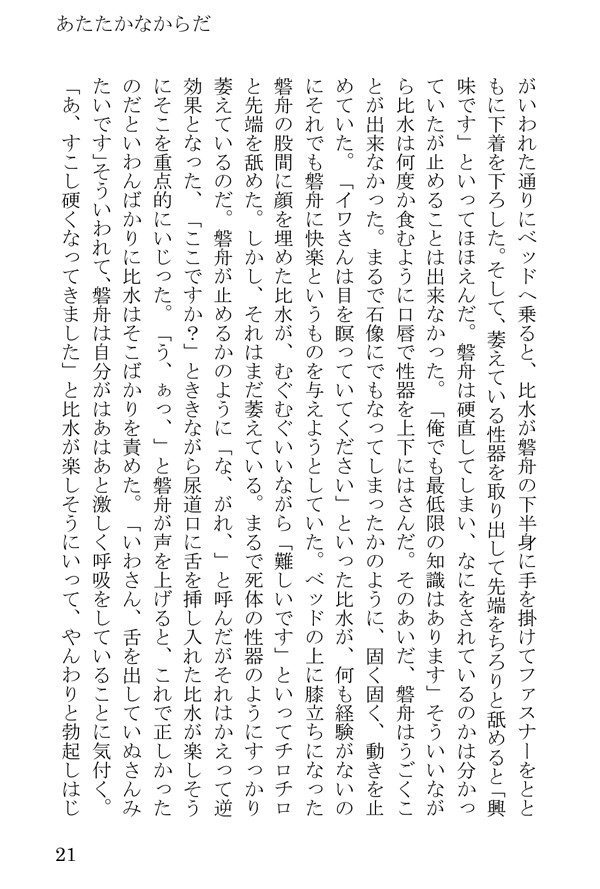 あたたかなからだ
がいわれた通りにベッドへ乗ると、比水が磐舟の下半身に手を掛けてファスナーをとと
もに下着を下ろした。そして、萎えている性器を取り出して先端をちろりと舐めると「興
味です」といってほほえんだ。磐舟は硬直してしまい、なにをされているのかは分かっ
ていたが止めることは出来なかった。「俺でも最低限の知識はあります」そういいなが
ら比水は何度か食むように口唇で性器を上下にはさんだ。そのあいだ、磐舟はうごくこ
とが出来なかった。まるで石像にでもなってしまったかのように、固く固く、動きを止
めていた。「イワさんは目を瞑っていてください」といった比水が、何も経験がないの
にそれでも磐舟に快楽というものを与えようとしていた。ベッドの上に膝立ちになった
磐舟の股間に顔を埋めた比水が、むぐむぐいいながら「難しいです」といってチロチロ
と先端を舐めた。しかし、それはまだ萎えている。まるで死体の性器のようにすっかり
萎えているのだ。磐舟が止めるかのように「な、がれ、」と呼んだがそれはかえって逆
効果となった、「ここですか？」とききながら尿道口に舌を挿し入れた比水が楽しそう
にそこを重点的にいじった。「う、ぁっ、」と磐舟が声を上げると、これで正しかった
のだといわんばかりに比水はそこばかりを責めた。「いわさん、舌を出していぬさんみ
たいです」そういわれて、磐舟は自分がはあはあと激しく呼吸をしていることに気付く。
「あ、すこし硬くなってきました」と比水が楽しそうにいって、やんわりと勃起しはじ
21